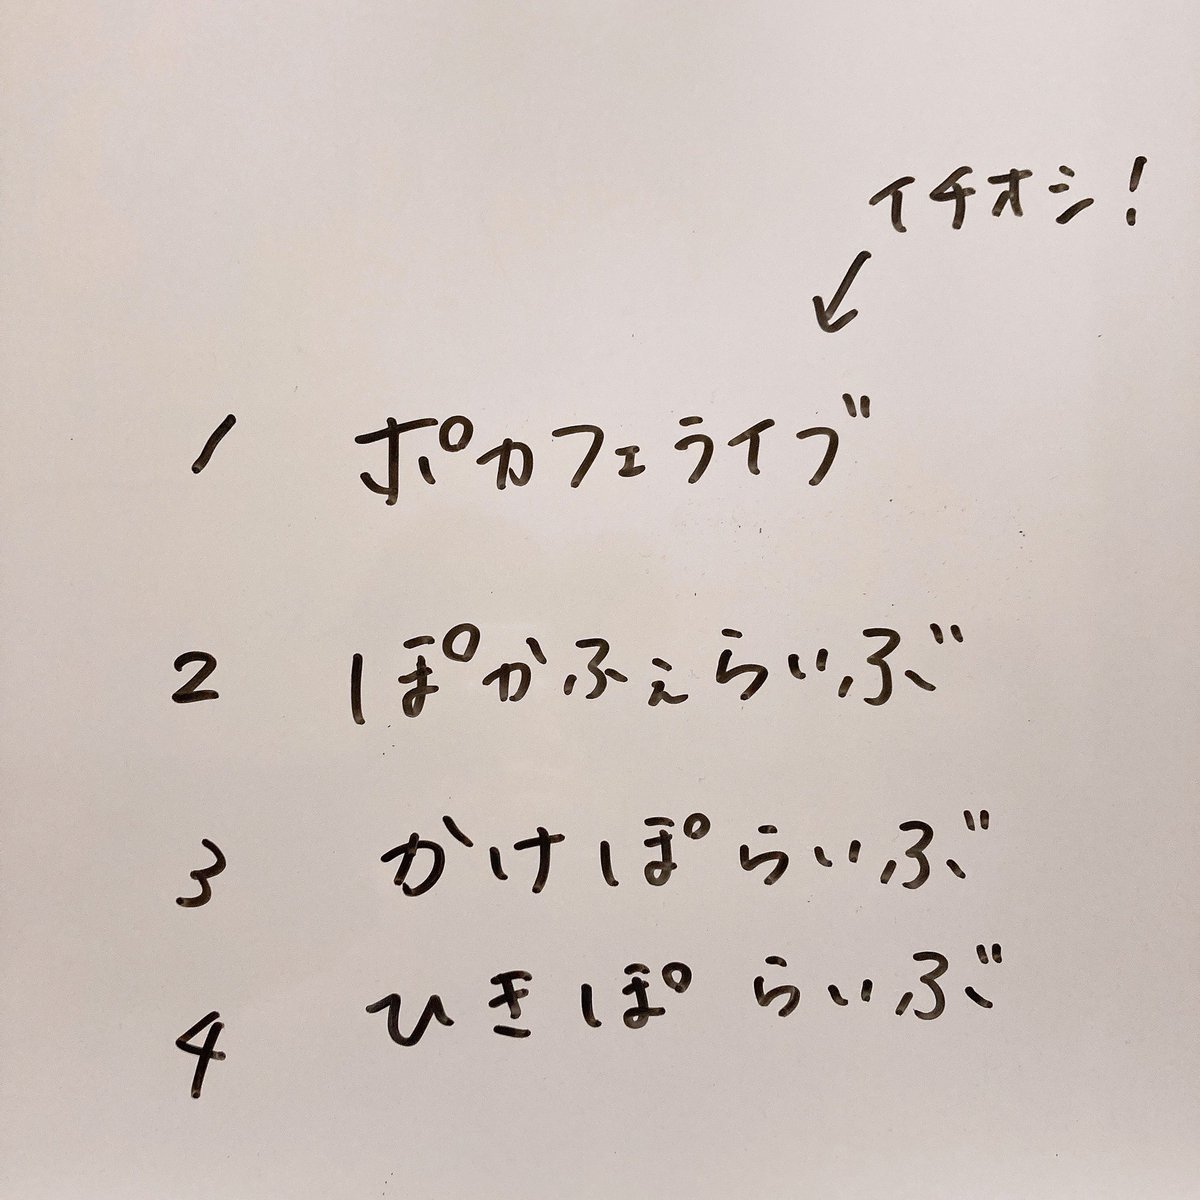 イチオシ!
↙
1 ポカフェライブ
2 ぽかふぇらいぶ
3 かけぽらいぶ
4 ひきぽらいぶ